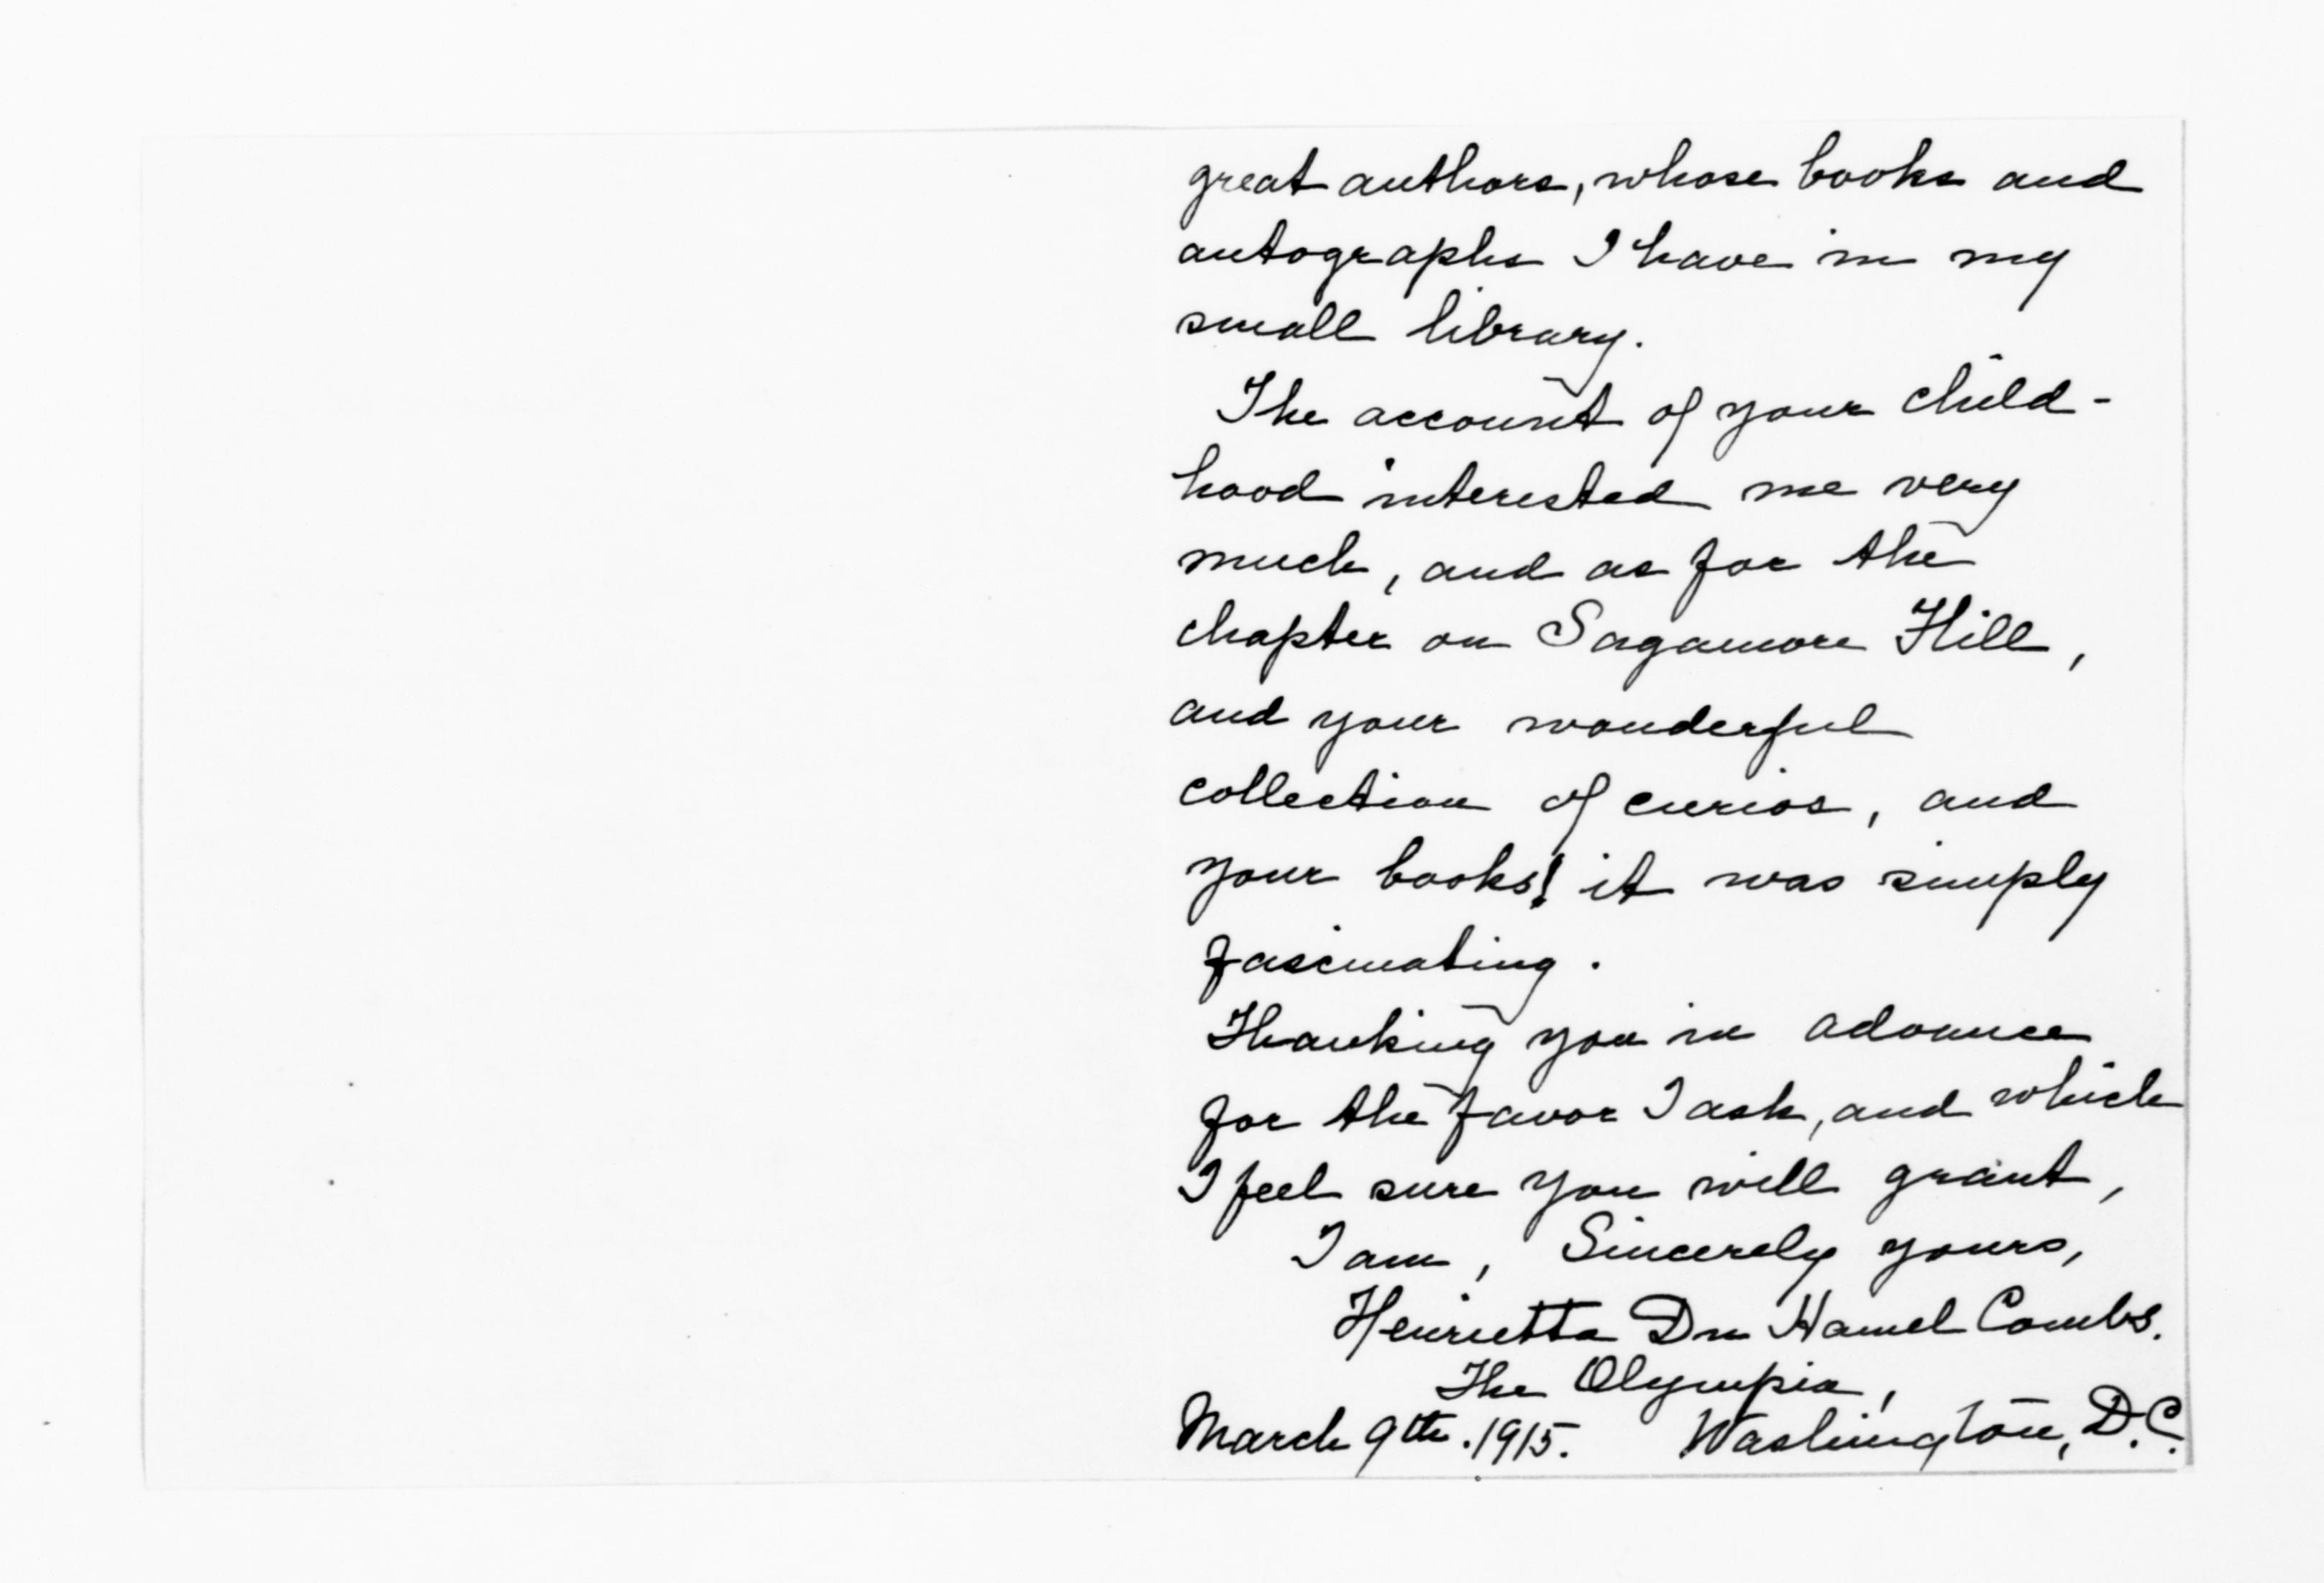 great authors, whose books and
autographs I have in my
small library.
The account of your child-
hood interested me very
much, and as for the
chapter on Sagamore Hill,
and your wonderful
collection of curios, and
your books! it was simply
fascinating.
Thanking you in advance
for the favor I ask, and which
I feel sure you will grant,
I am, Sincerely yours,
Henrietta Du Hamel Combs.
The Olympia,
March 9th. 1915. Washington, D.C.